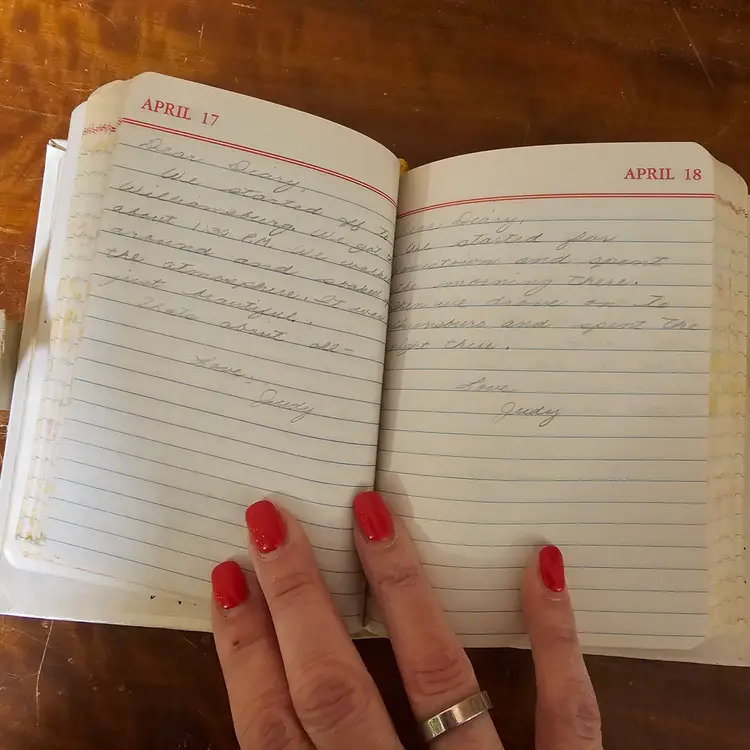 APRIL 17
Dear Diary,
We started off to
Williamsburg. We got
about 1:30 P.M. We walked
around and soaked
the atmosphere. It was
just beautiful.
Thats about all-
Love,
Judy
APRIL 18
Dear Diary,
We started for
and spent
the morning there.
Then we drove on to
and spent the
night there.
Love
Judy